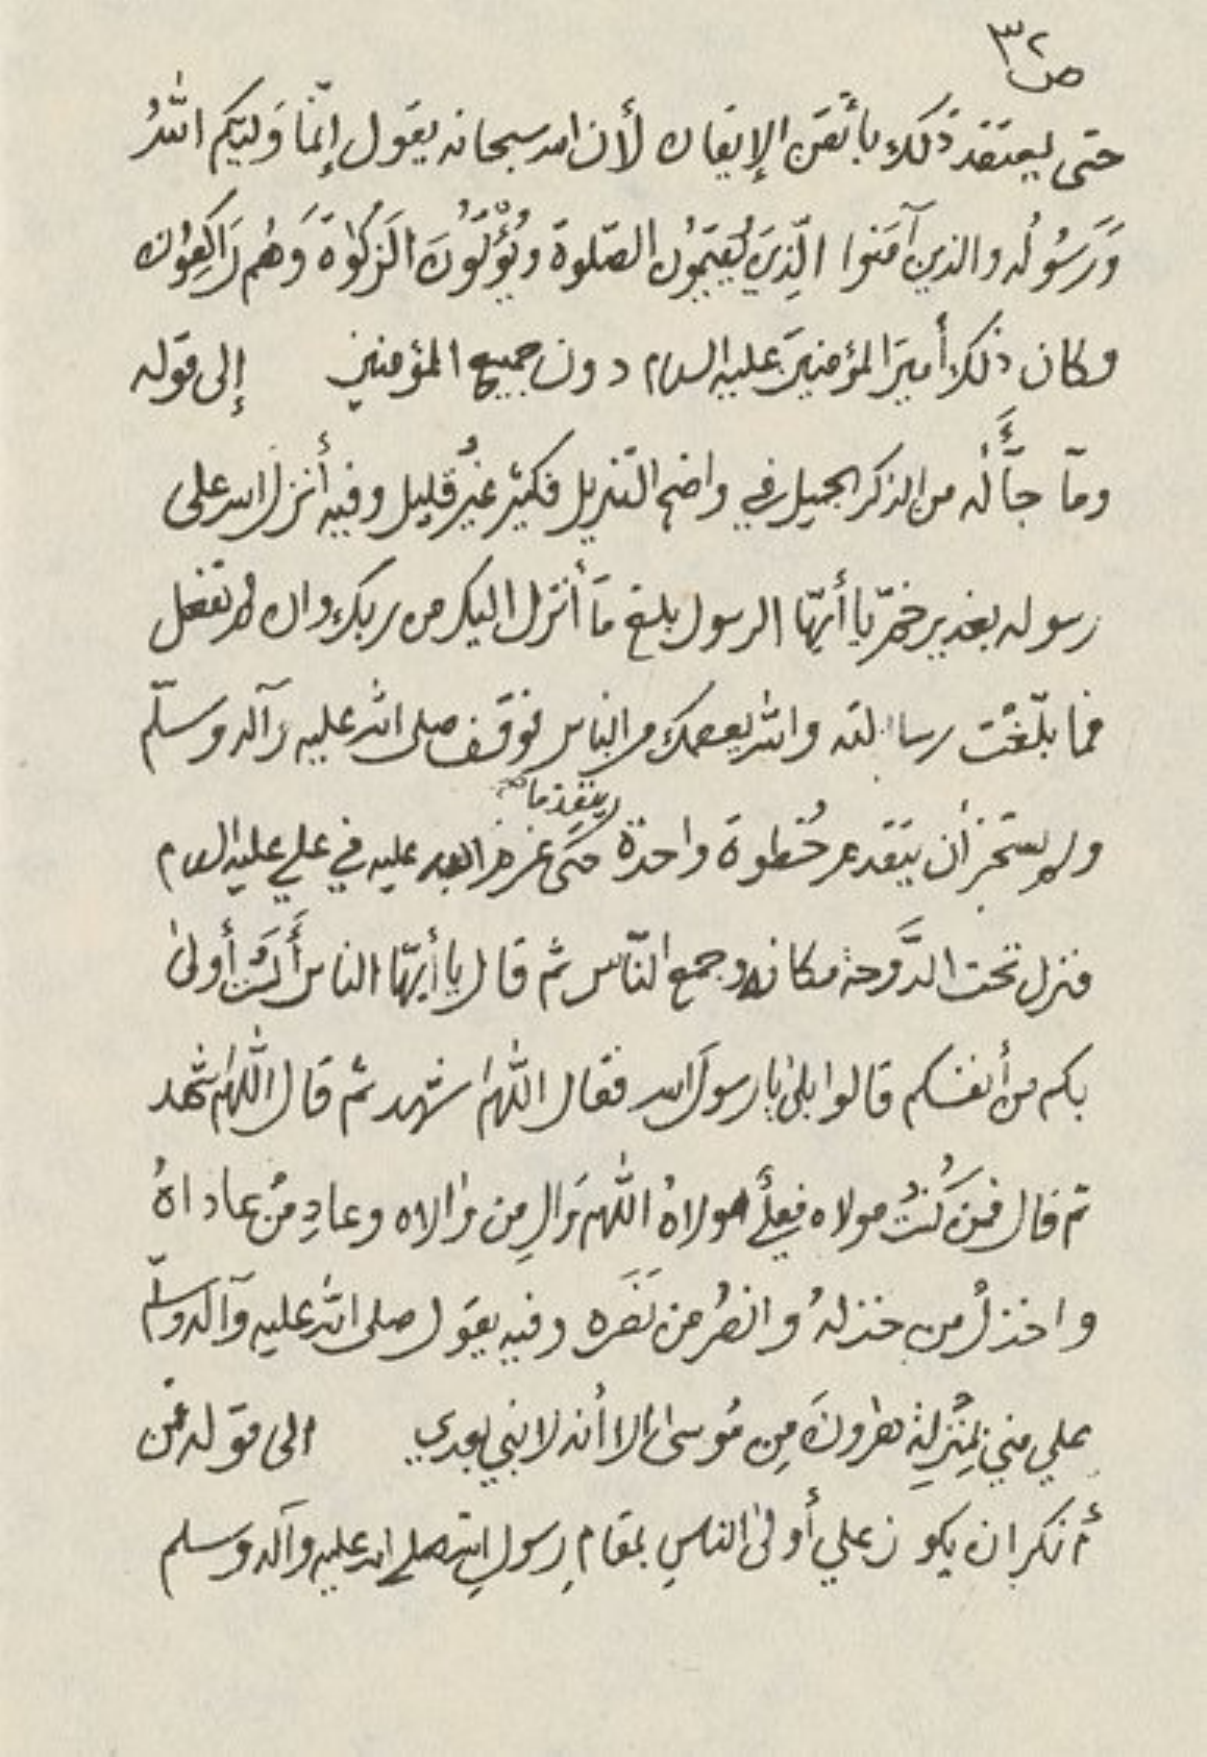 ص ٣٢
حتى يعتقد ذلك بأتقن الإيقان لأن الله سبحانه يقول إنّما وَليّكم اللهُ
وَرَسُولُه والذين آمَنوا الّذِينَ يُقيمُون الصّلوةَ ويُؤْتُونَ الزكوٰةَ وَهُم رَاكِعُون
وكان ذلك أميرَ المؤمنينَ عليه السلام دون جميع المؤمنين إلى قوله
ومآ جآءَ لَه من الذكر الجميل في واضح التنزيل فكثير غيرُ قليل وفيه أنزل الله على
رسوله بغدير خمّ يا أيّها الرسول بلغ مآ أنزل اليك من ربك وان لم تفعل
فما بلّغت رسالته والله يعصمك من الناس فوقف صلى الله عليه وآله وسلّم
لينفذ ما
ولم يستجز أن يتقدم خُطوة واحدة حتى عزم الله عليه في علي عليه السلام
فنزل تحت الدَّوحة مكانه وجمع النّاس ثم قال يا أيّها الناس أَلَستُ أولى
بكم من أنفسكم قالوا بلىٰ يا رسولَ الله فقال اللهمّ اشهد ثم قال اللهمّ اشهد
ثم قال فمَن كُنتُ مولاه فعليٌّ مولاهُ اللهم وَالِ مِن والاه وعادِ مَن عاداهُ
واخذلْ من خذلهُ وانصُر من نَصَره وفيه يقول صلى الله عليه وآله وسلّم
علي مني بمَنْزِلةِ هارونَ مِن مُوسىٰ إلا أنه لا نبي بعدي الى قوله فمن
أنكر ان يكون علي أولىٰ الناسِ بمقامِ رسولِ الله صلى الله عليه وآله وسلم